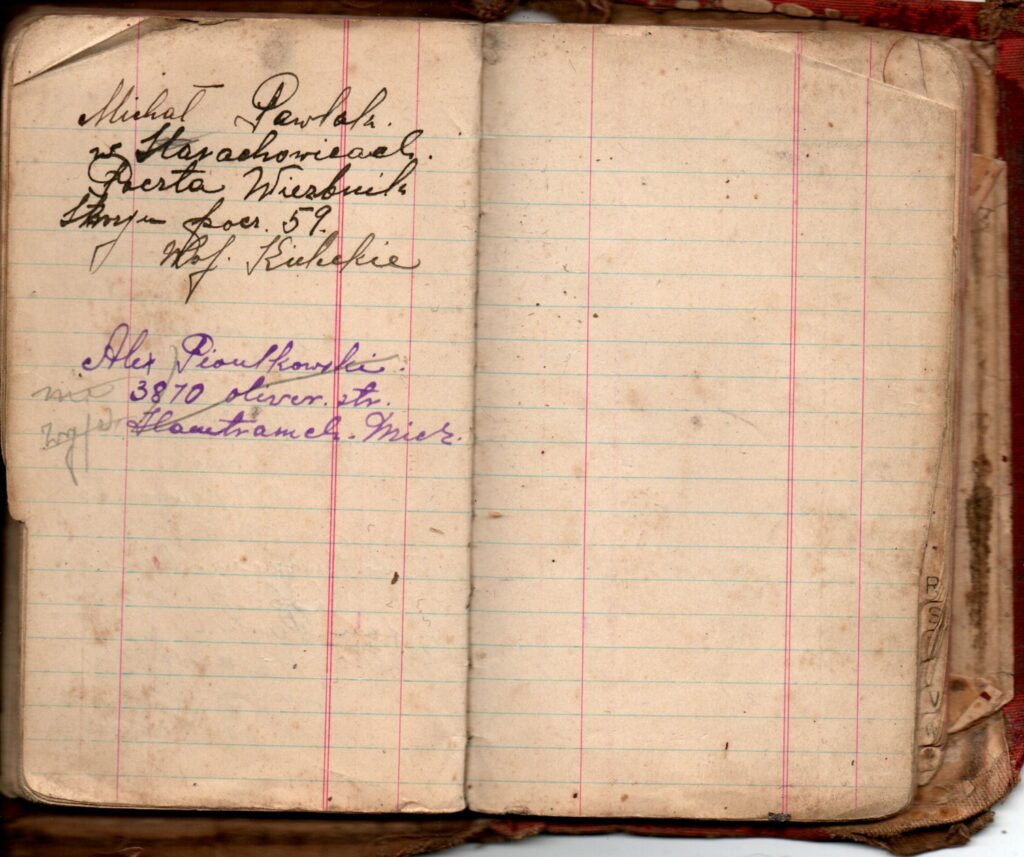 Michał Pawlak.
w Starachowicach.
Poczta Wierzbnik
Skrzyn pocz. 59.
Woj. Kieleckie
Alex Pioutkowski.
nie 3870 oliver. str.
Hamtramck. Mich.
R
S
T
U